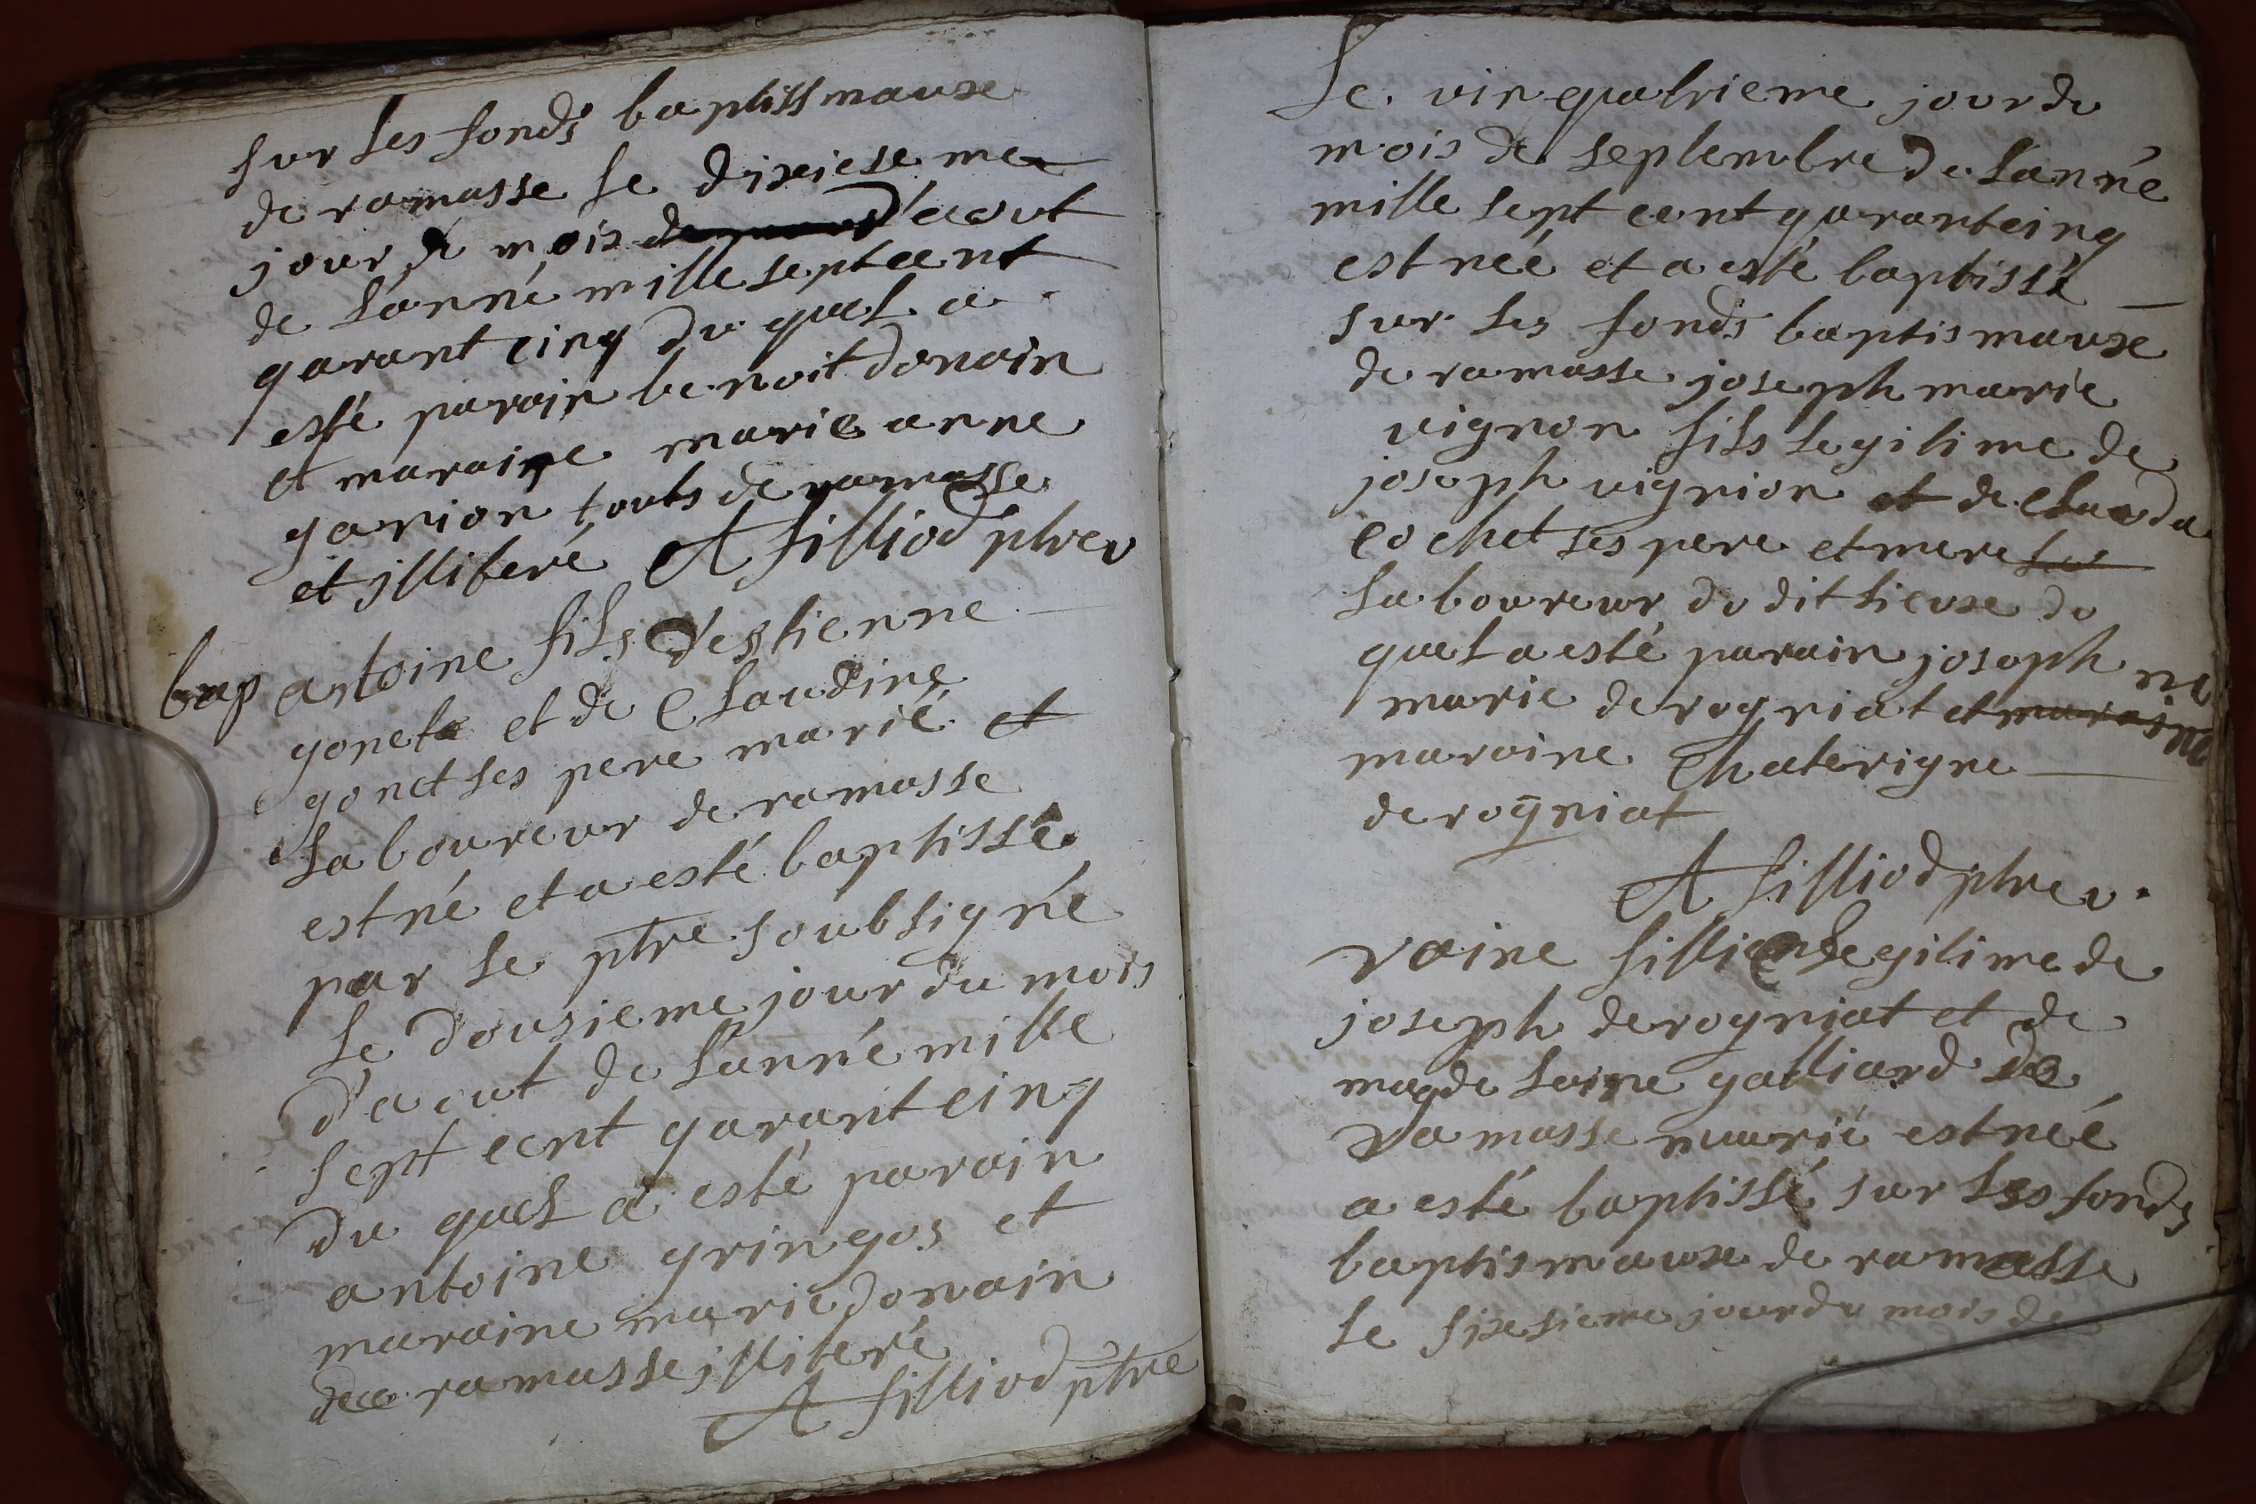 sur les fonds baptissmauxe
de ramasse le dixieseme
jour de mois d'aout
de l'anné mille septcent
qarant cinq du quel a
esté parain benoit donain
et maraine marie anne
garion touts de ramasse
et jlliteré A filliod ptre v
bap antoine fils d'estienne
gonet et de claudine
gonet ses pere marié et
laboureur de ramasse
est né et a esté baptissé
par le ptre soubsigné
le dousieme jour du mois
d'aout de l'anné mille
sept cent qarant cinq
du quel a esté parain
antoine gringos et
maraine marie donain
de ramasse jlliteré
A filliod ptre
le vin quatrieme jour du
mois de septembre de l'anné
mille sept cent qarantcinq
est néé et a esté baptissé
sur les fonds baptismauxe
de ramasse joseph marie
vignon fils legitime de
joseph vignion et de clauda
cochet ses pere et mere
laboureur du dit lieuxe du
quel a esté parain joseph
marie derogniat et
maraine Chaterigne
derogniat
A filliod ptre v.
filli legitime de
joseph derogniat et de
magdelaine galliard de
ramasse marié est néé
a esté baptissé sur les fonds
baptismauxe de ramasse
le sixesieme jour du mois de